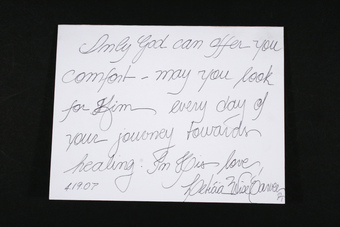 Only God can offer you
comfort - may you look
for Him every day of
your journey towards
healing. In His love,
4.19.07